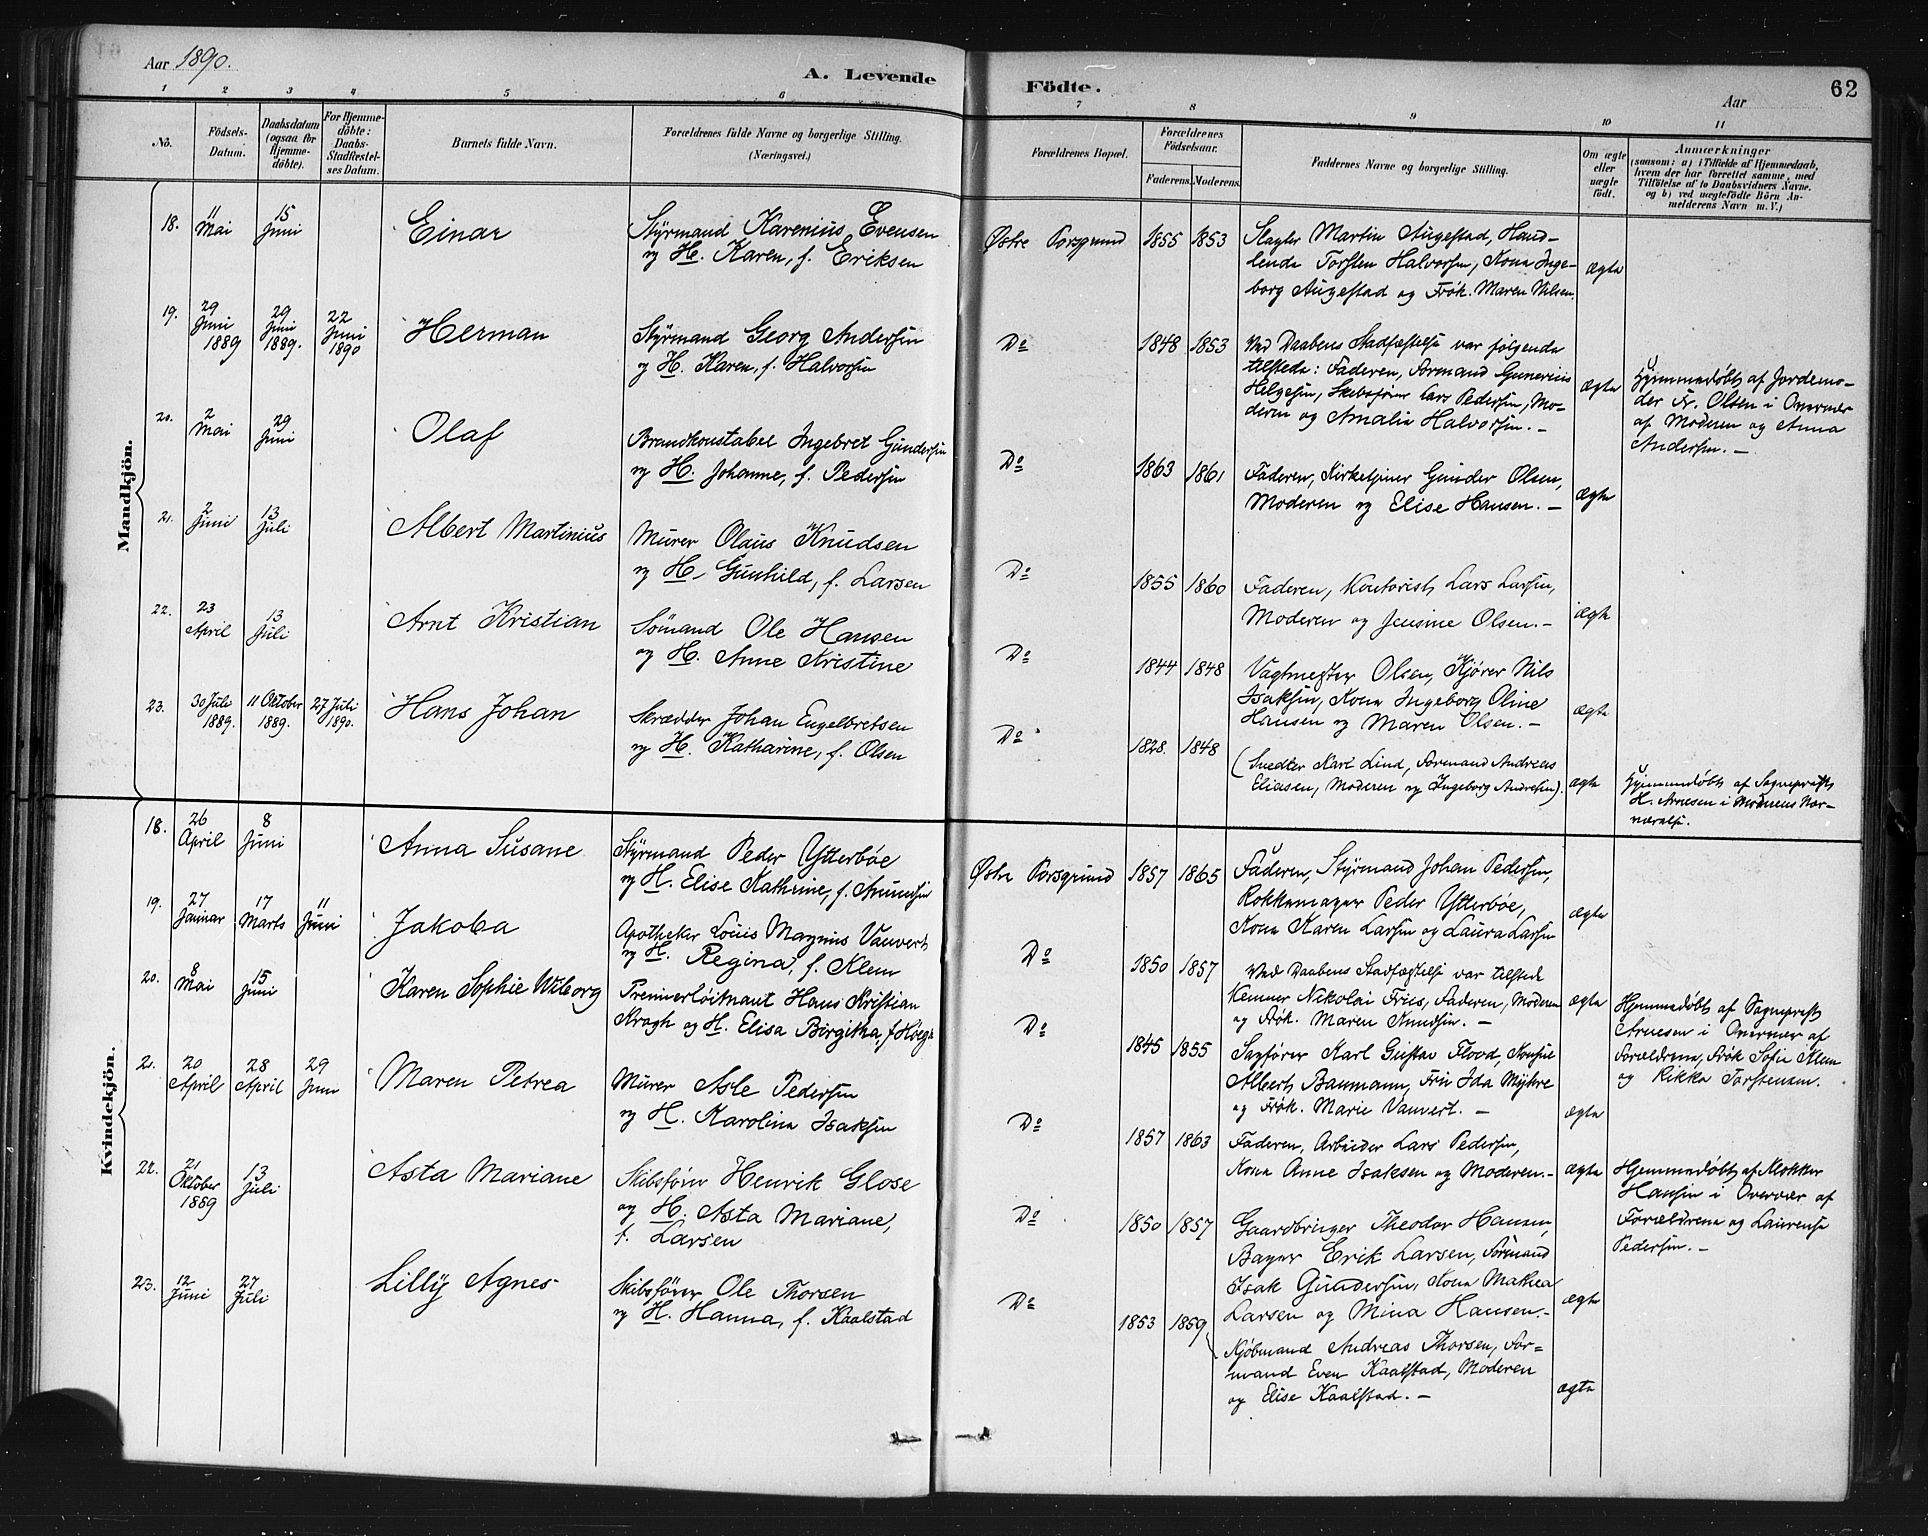 Aar 1890.
A. Levende
Födte.
Aar
62
1 2 3 4 5 6 7 8 9 10 11
No.
Födsels-
Datum.
Daabsdatum
(ogsaa for
Hjemme-
döbte).
For Hjemme-
döbte:
Daabs-
Stadfæstel-
ses Datum.
Barnets fulde Navn.
Forældrenes fulde Navne og borgerlige Stilling.
(Næringsvei.)
Forældrenes Bopæl.
Forældrenes
Födselsaar.
Faderens. Moderens.
Faddernes Navne og borgerlige Stilling.
Om ægte
eller
uægte
födt.
Anmærkninger
(saasom: a) i Tilfælde af Hjemmedaab,
hvem der har forrettet samme, med
Tilföielse af to Daabsvidners Navne.
og b) ved uægtefödte Börn An-
melderens Navn m. V.)
Mandkjön.
18. 11 Mai 15 Juni Einar
Styrmand Karenius Evensen
og H. Karen, f. Eriksen
Østre Porsgrund 1855 1853
Slagter Martin Augestad, Hand-
lende Torsten Halvorsen, Kona Inge-
borg Augestad og Frøk. Maren Nilsen.
ægte
19. 29 Juni 1889 29 Juni 1889. 22 Juni 1890 Herman
Styrmand Georg Andersen
og H. Karen, f. Halvorsen
Do 1848 1853
Ved Daabens Stadfæstelse var følgende
tilstede: Faderen, Formand Gunerius
Helgesen, Skibsfører Lars Pedersen, Mo-
deren og Amalia Halvorsen. —
ægte
Hjemmedøbt af Jordemo-
der Fr. Olsen i Overvær
af Moderen og Anna
Andersen. —
20. 2 Mai 29 Juni Olaf
Brandkonstabel Ingebret Gundersen
og H. Johanne, f. Pedersen
Do 1863 1861
Faderen, Kirketjener Gunder Olsen,
Moderen og Elise Hansen. —
ægte
21. 2 Juni 13 Juli Albert Martinius
Murer Olaus Knudsen
og H. Gunhild, f. Larsen
Do 1855 1860
Faderen, Kontorist Lars Larsen,
Moderen og Jensine Olsen. —
ægte
22. 23 April 13 Juli Arnt Kristian
Sømand Ole Hansen
og H. Anne Kristine
Do 1844 1848
Vagtmester Olsen, Kjører Nils
Isaksen, Kona Ingeborg Oline
Hansen og Maren Olsen. —
ægte
23. 30 Juli 1889. 11 Oktober 1889. 27 Juli 1890. Hans Johan
Skrædder Johan Engelbretsen
og H. Katharine, f. Olsen
Do 1828. 1848
(Snedker Karl Lind, Formand Andreas
Eliasen, Moderen og Ingeborg Andresen).
ægte
Hjemmedøbt af Sognepræst
H. Arnesen i Moderens Nær-
værelse.
Kvindekjön.
18. 26 April 8 Juni Anna Susane
Styrmand Peder Ytterbøe
og H. Elise Kathrine, f. Amundsen
Østre Porsgrund 1857 1865
Faderen, Styrmand Johan Pedersen,
Rokkemager Peder Ytterbøe,
Kona Karen Larsen og Laura Larsen
ægte
19. 27 Januar 17 Marts 11 Juni Jakoba
Apotheker Louis Magnus Vauvert
og H. Regina, f. Klem
Do 1850 1857
Ved Daabens Stadfæstelse var tilstede
Kemner Nikolai Friis, Faderen, Moderen
og Frøk. Maren Knudsen. —
ægte
Hjemmedøbt af Sognepræst
Arnesen i Overvær af
Forældrene, Frøk Sofie Klem
og Rikka Torstensen.
20. 8 Mai 15 Juni Karen Sophie Wiborg
Premierløitnant Hans Kristian
Kragh og H. Elisa Birgitha, f. Høegh
Do 1845 1855
Sagfører Karl Gustav Flood, Konsul
Albert Baumann, Fru Ida Myhre
og Frøk. Marie Vauvert. —
ægte
21. 20 April 28 April 29 Juni Maren Petrea
Murer Asle Pedersen
og H. Karolina Isaksen
Do 1857 1863
Faderen, Arbeider Lars Pedersen,
Kona Anne Isaksen og Moderen. —
ægte
Hjemmedøbt af Klokker
Hansen i Overvær af
Forældrene og Laurense
Pedersen. —
22. 21 Oktober 1889 13 Juli Asta Mariane
Skibsfører Henrik Glose
og H. Asta Mariane,
f. Larsen
Do 1850 1857
Gaardbruger Theodor Hansen,
Bager Erik Larsen, Formand
Isak Gundersen, Kona Mathea
Larsen og Mina Hansen. —
ægte
23. 12 Juni 27 Juli Lilly Agnes
Skibsfører Ole Thorsen
og H. Hanna, f. Kaalstad
Do 1853 1859
Kjøbmand Andreas Thorsen, For-
mand Even Kaalstad, Moderen
og Elise Kaalstad. —
ægte